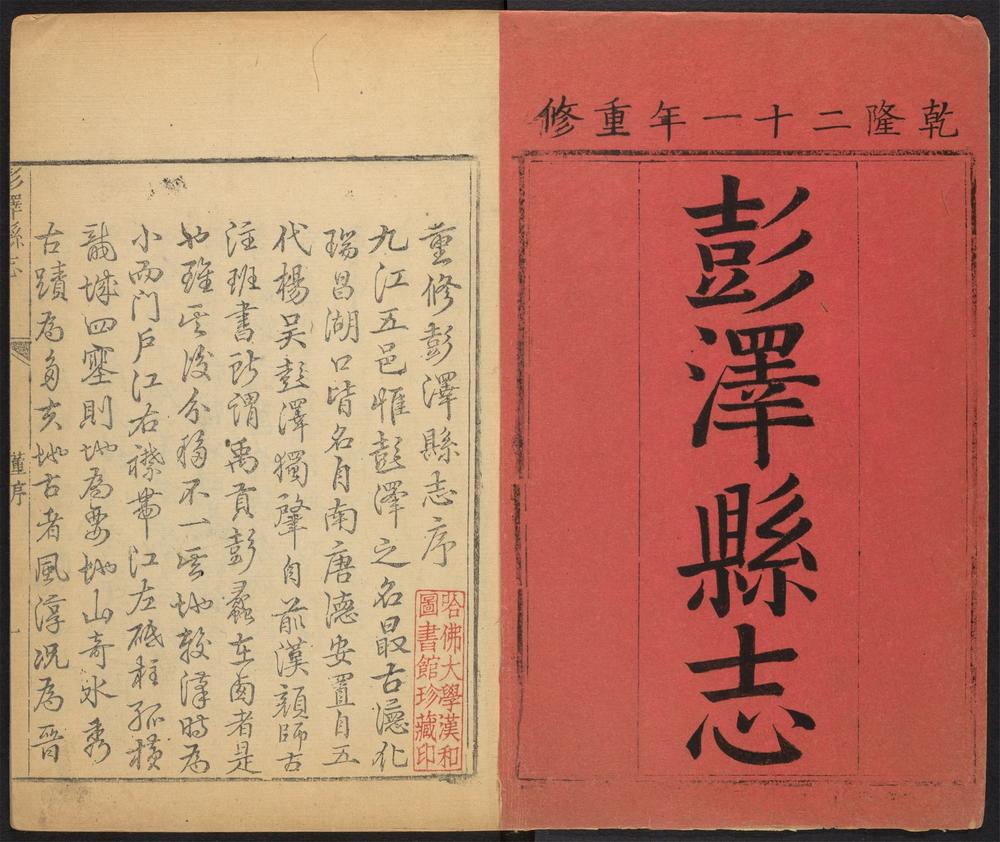 乾隆二十一年重修
彭澤縣志
重修彭澤縣志序
九江五邑惟彭澤之名最古德化
瑞昌湖口皆名自南唐德安置自五
代楊吳彭澤獨肇自前漢顏師古
注班書所謂禹貢彭蠡在西者是
也雖其後分移不一其地較漢時為
小而门戶江右襟帶江左砥柱孤橫
龍城四塞則地為要地山奇水秀
古蹟為多夫地古者風淳況為晉
彭澤縣志 董序 一
哈佛大學漢和
圖書館珍藏印